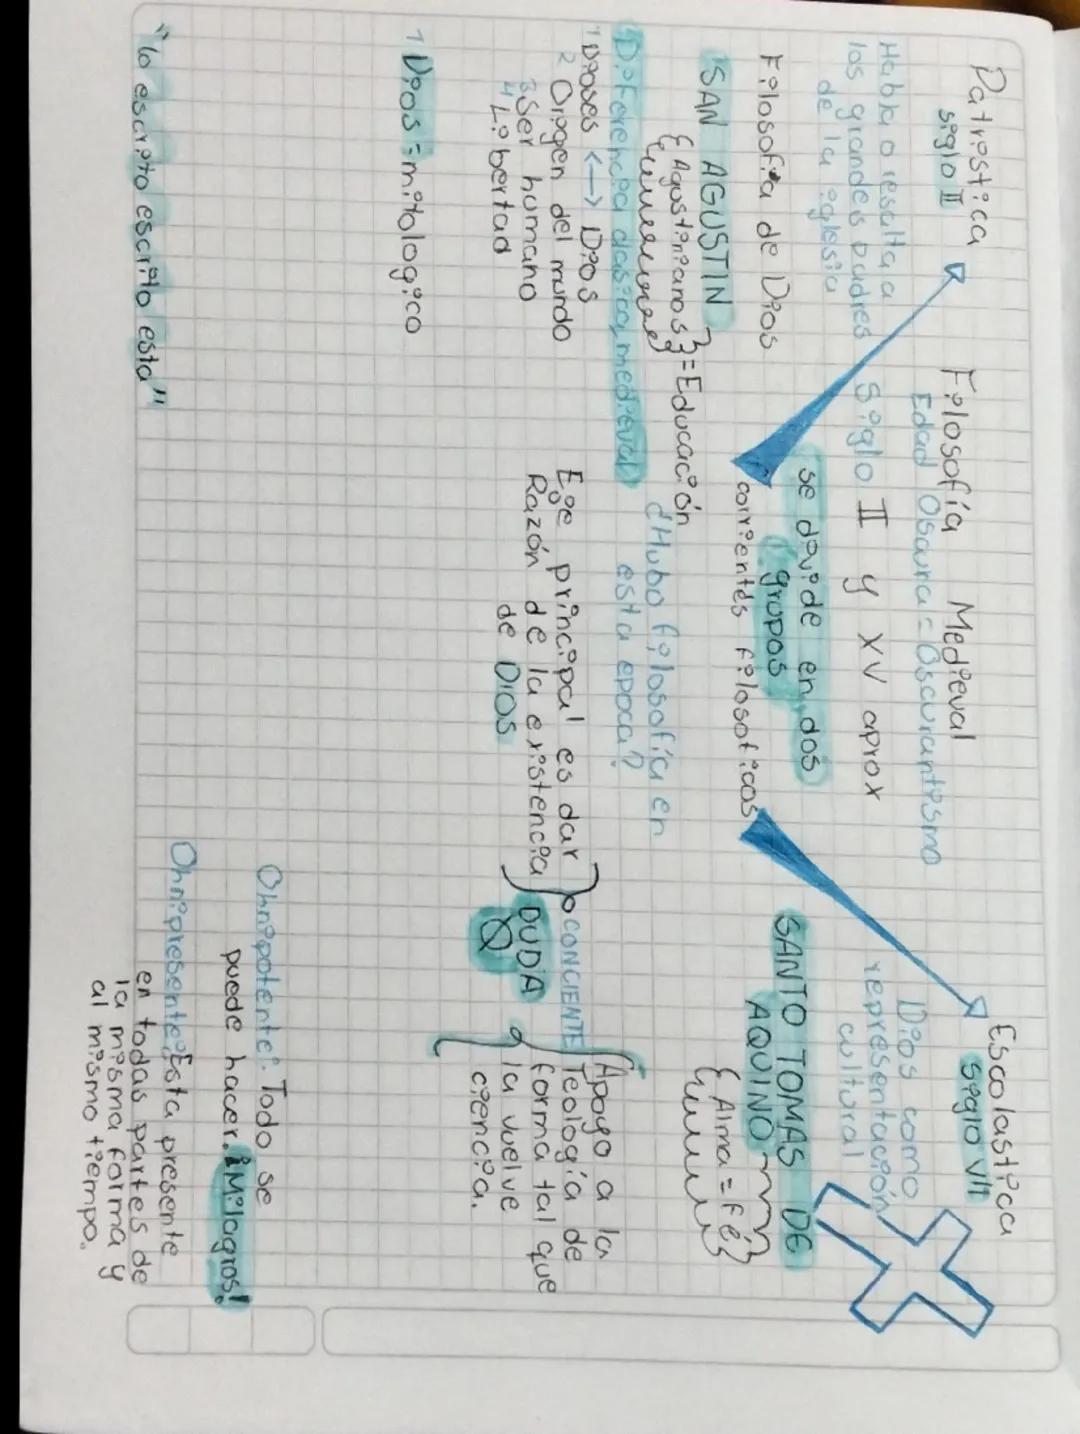 Filosofía Medieval
Edad Oscura = Oscurantismo
Siglo II y XV aprox
se divide en dos
grupos
corrientes filosoficas
Patristica
siglo II
Habla o resalta a
los grandes padres
de la iglesia
Filosofia de Dios
SAN AGUSTIN
{Agustinianos} = Educación
Escolastica
siglo VII
Dios como
representación
cultural
SANTO TOMAS DE
AQUINO
{Alma = fé}
Diferencia clasica, medieval
1 Dioses <-> Dios
2 Origen del mundo
3 Ser humano
4 Libertad
¿Hubo filosofía en
esta epoca?
Eje principal es dar
Razón de la existencia
de DIOS
CONCIENTE
DUDA
Apoyo a la
Teología de
forma tal que
la vuelve
ciencia.
1 Dios = mitologico
Ohnipotente: Todo se
puede hacer. ¡Milagros!
Ohnipresente: Esta presente
en todas partes de
la misma forma y
al mismo tiempo.
"lo escrito escrito esta"